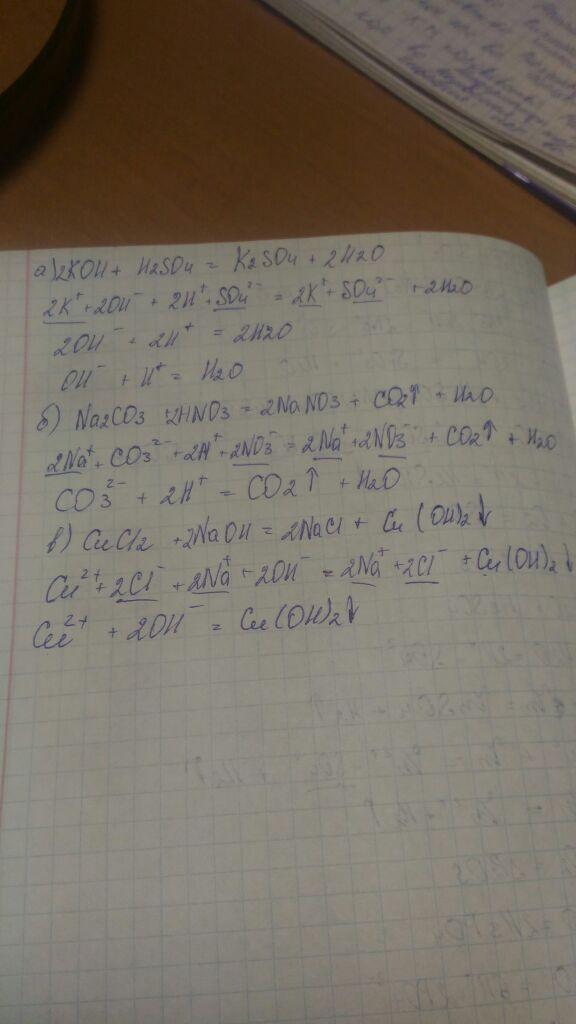 а) 2KOH + H2SO4 = K2SO4 + 2H2O
2K⁺ + 2OH⁻ + 2H⁺ + SO4²⁻ = 2K⁺ + SO4²⁻ + 2H2O
2OH⁻ + 2H⁺ = 2H2O
OH⁻ + H⁺ = H2O
б) Na2CO3 + 2HNO3 = 2NaNO3 + CO2↑ + H2O
2Na⁺ + CO3²⁻ + 2H⁺ + 2NO3⁻ = 2Na⁺ + 2NO3⁻ + CO2↑ + H2O
CO3²⁻ + 2H⁺ = CO2↑ + H2O
в) CuCl2 + 2NaOH = 2NaCl + Cu(OH)2↓
Cu²⁺ + 2Cl⁻ + 2Na⁺ + 2OH⁻ = 2Na⁺ + 2Cl⁻ + Cu(OH)2↓
Cu²⁺ + 2OH⁻ = Cu(OH)2↓